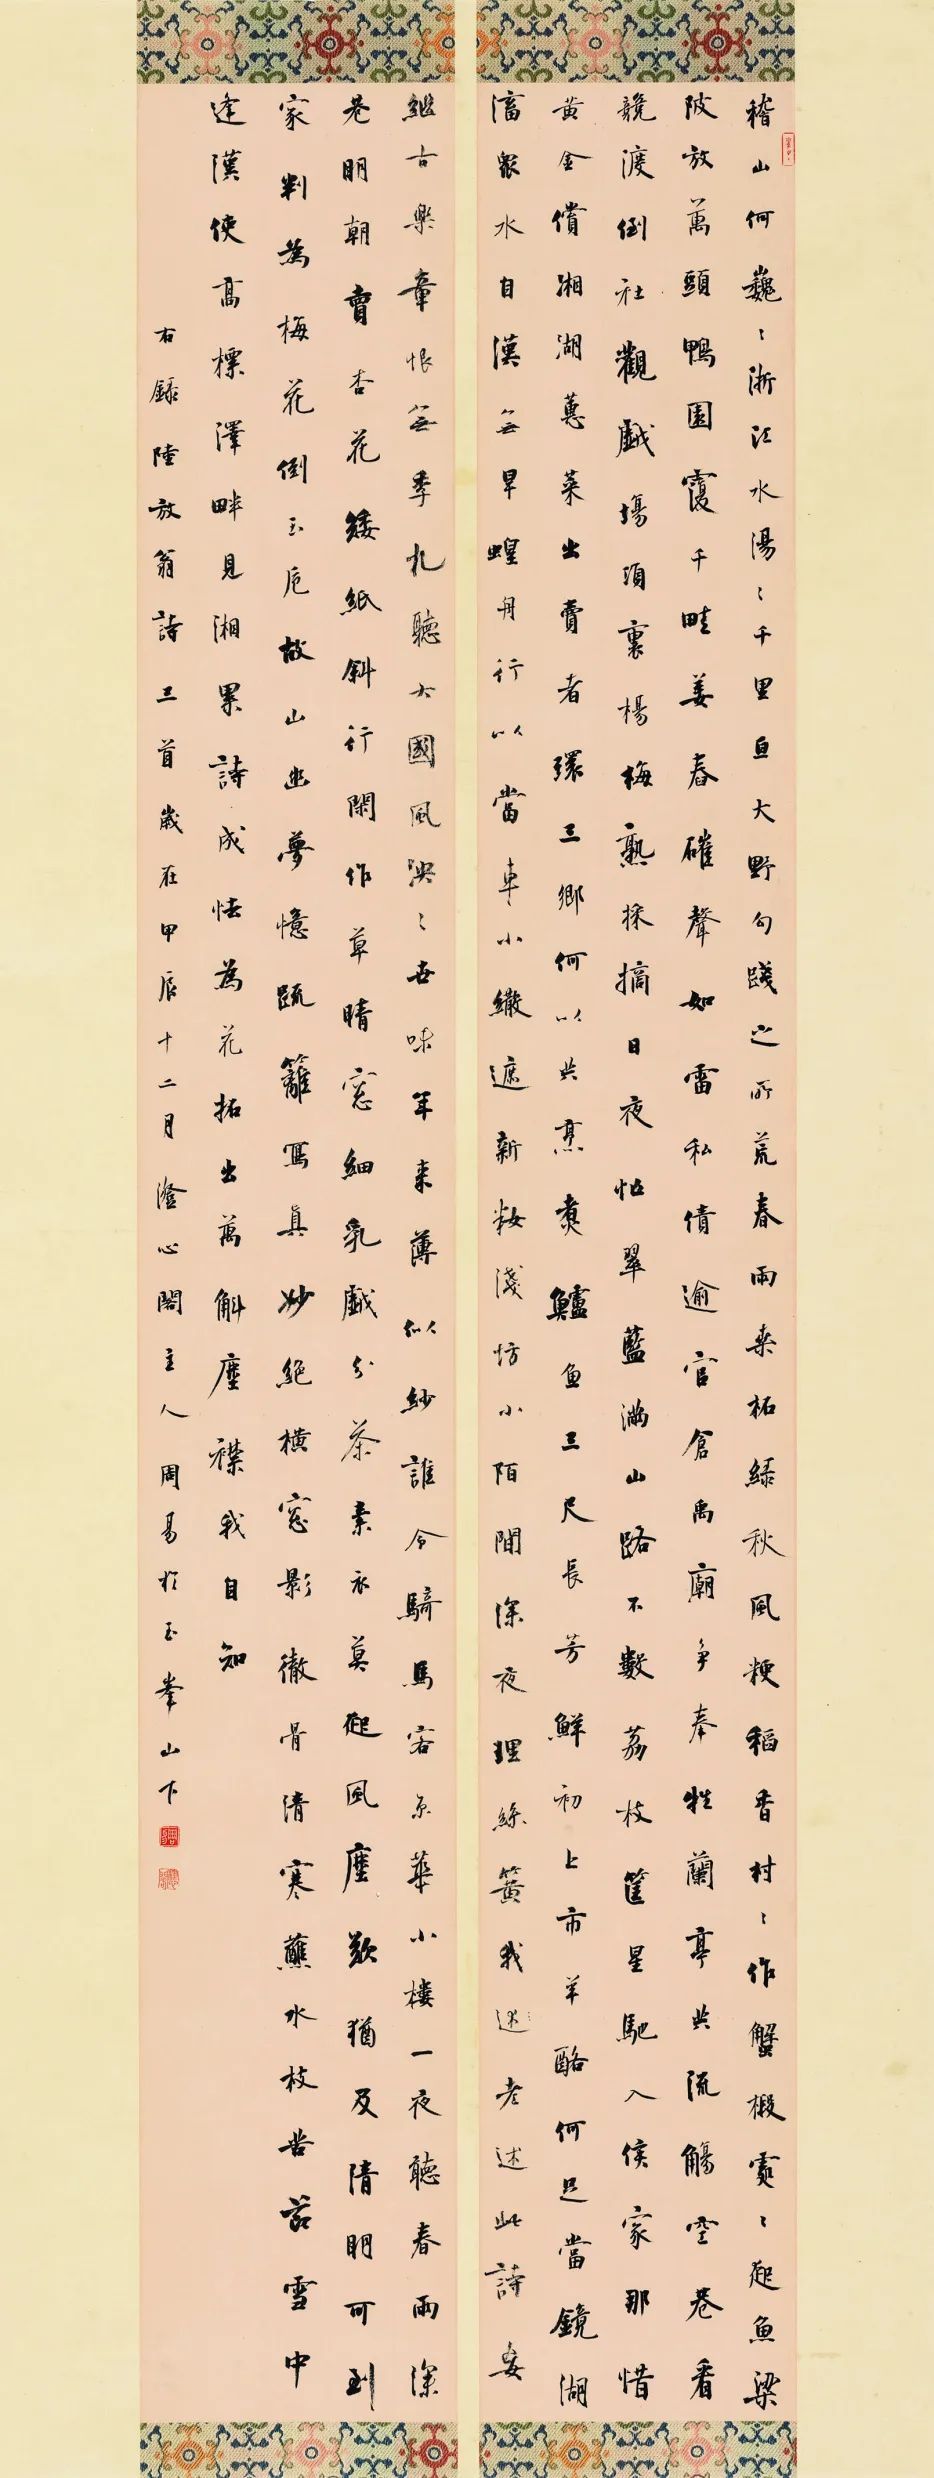 稽山何巍〻浙江水湯〻千里亘大野勾踐之所荒春雨桑柘綠秋風粳稻香村〻作蟹椴處〻起魚梁
陂放萬頭鴨園覆千畦姜舂碓聲如雷私債逾官倉禹廟争奉牲蘭亭共流觴空巷看
競渡倒社觀戱場項裏楊梅熟採摘日夜忙翠藍滿山路不數荔枝筐星馳入侯家那惜
黄金償湘湖蓴菜出賣者環三鄉何以共烹煮鱸魚三尺長芳鮮初上市羊酪何足當鏡湖
滀眾水自漢無旱蝗舟行以當車小繖遮新妝淺坊小陌間深夜理絲簧我述老述此詩妄
繼古樂章恨無季札聽大國風泱〻世味年来薄似紗誰令騎馬客京華小樓一夜聽春雨深
巷明朝賣杏花矮紙斜行閑作草晴窓細乳戱分茶素衣莫起風塵歎猶及清明可到
家判為梅花倒玉卮故山幽夢憶疏籬寫真妙絶横窓影徹骨清寒蘸水枝苦節雪中
逢漢使高標澤畔見湘累詩成怯為花拈出萬斛塵襟我自知
右錄陸放翁詩三首歲在甲辰十二月澄心閣主人周易於玉拳山下